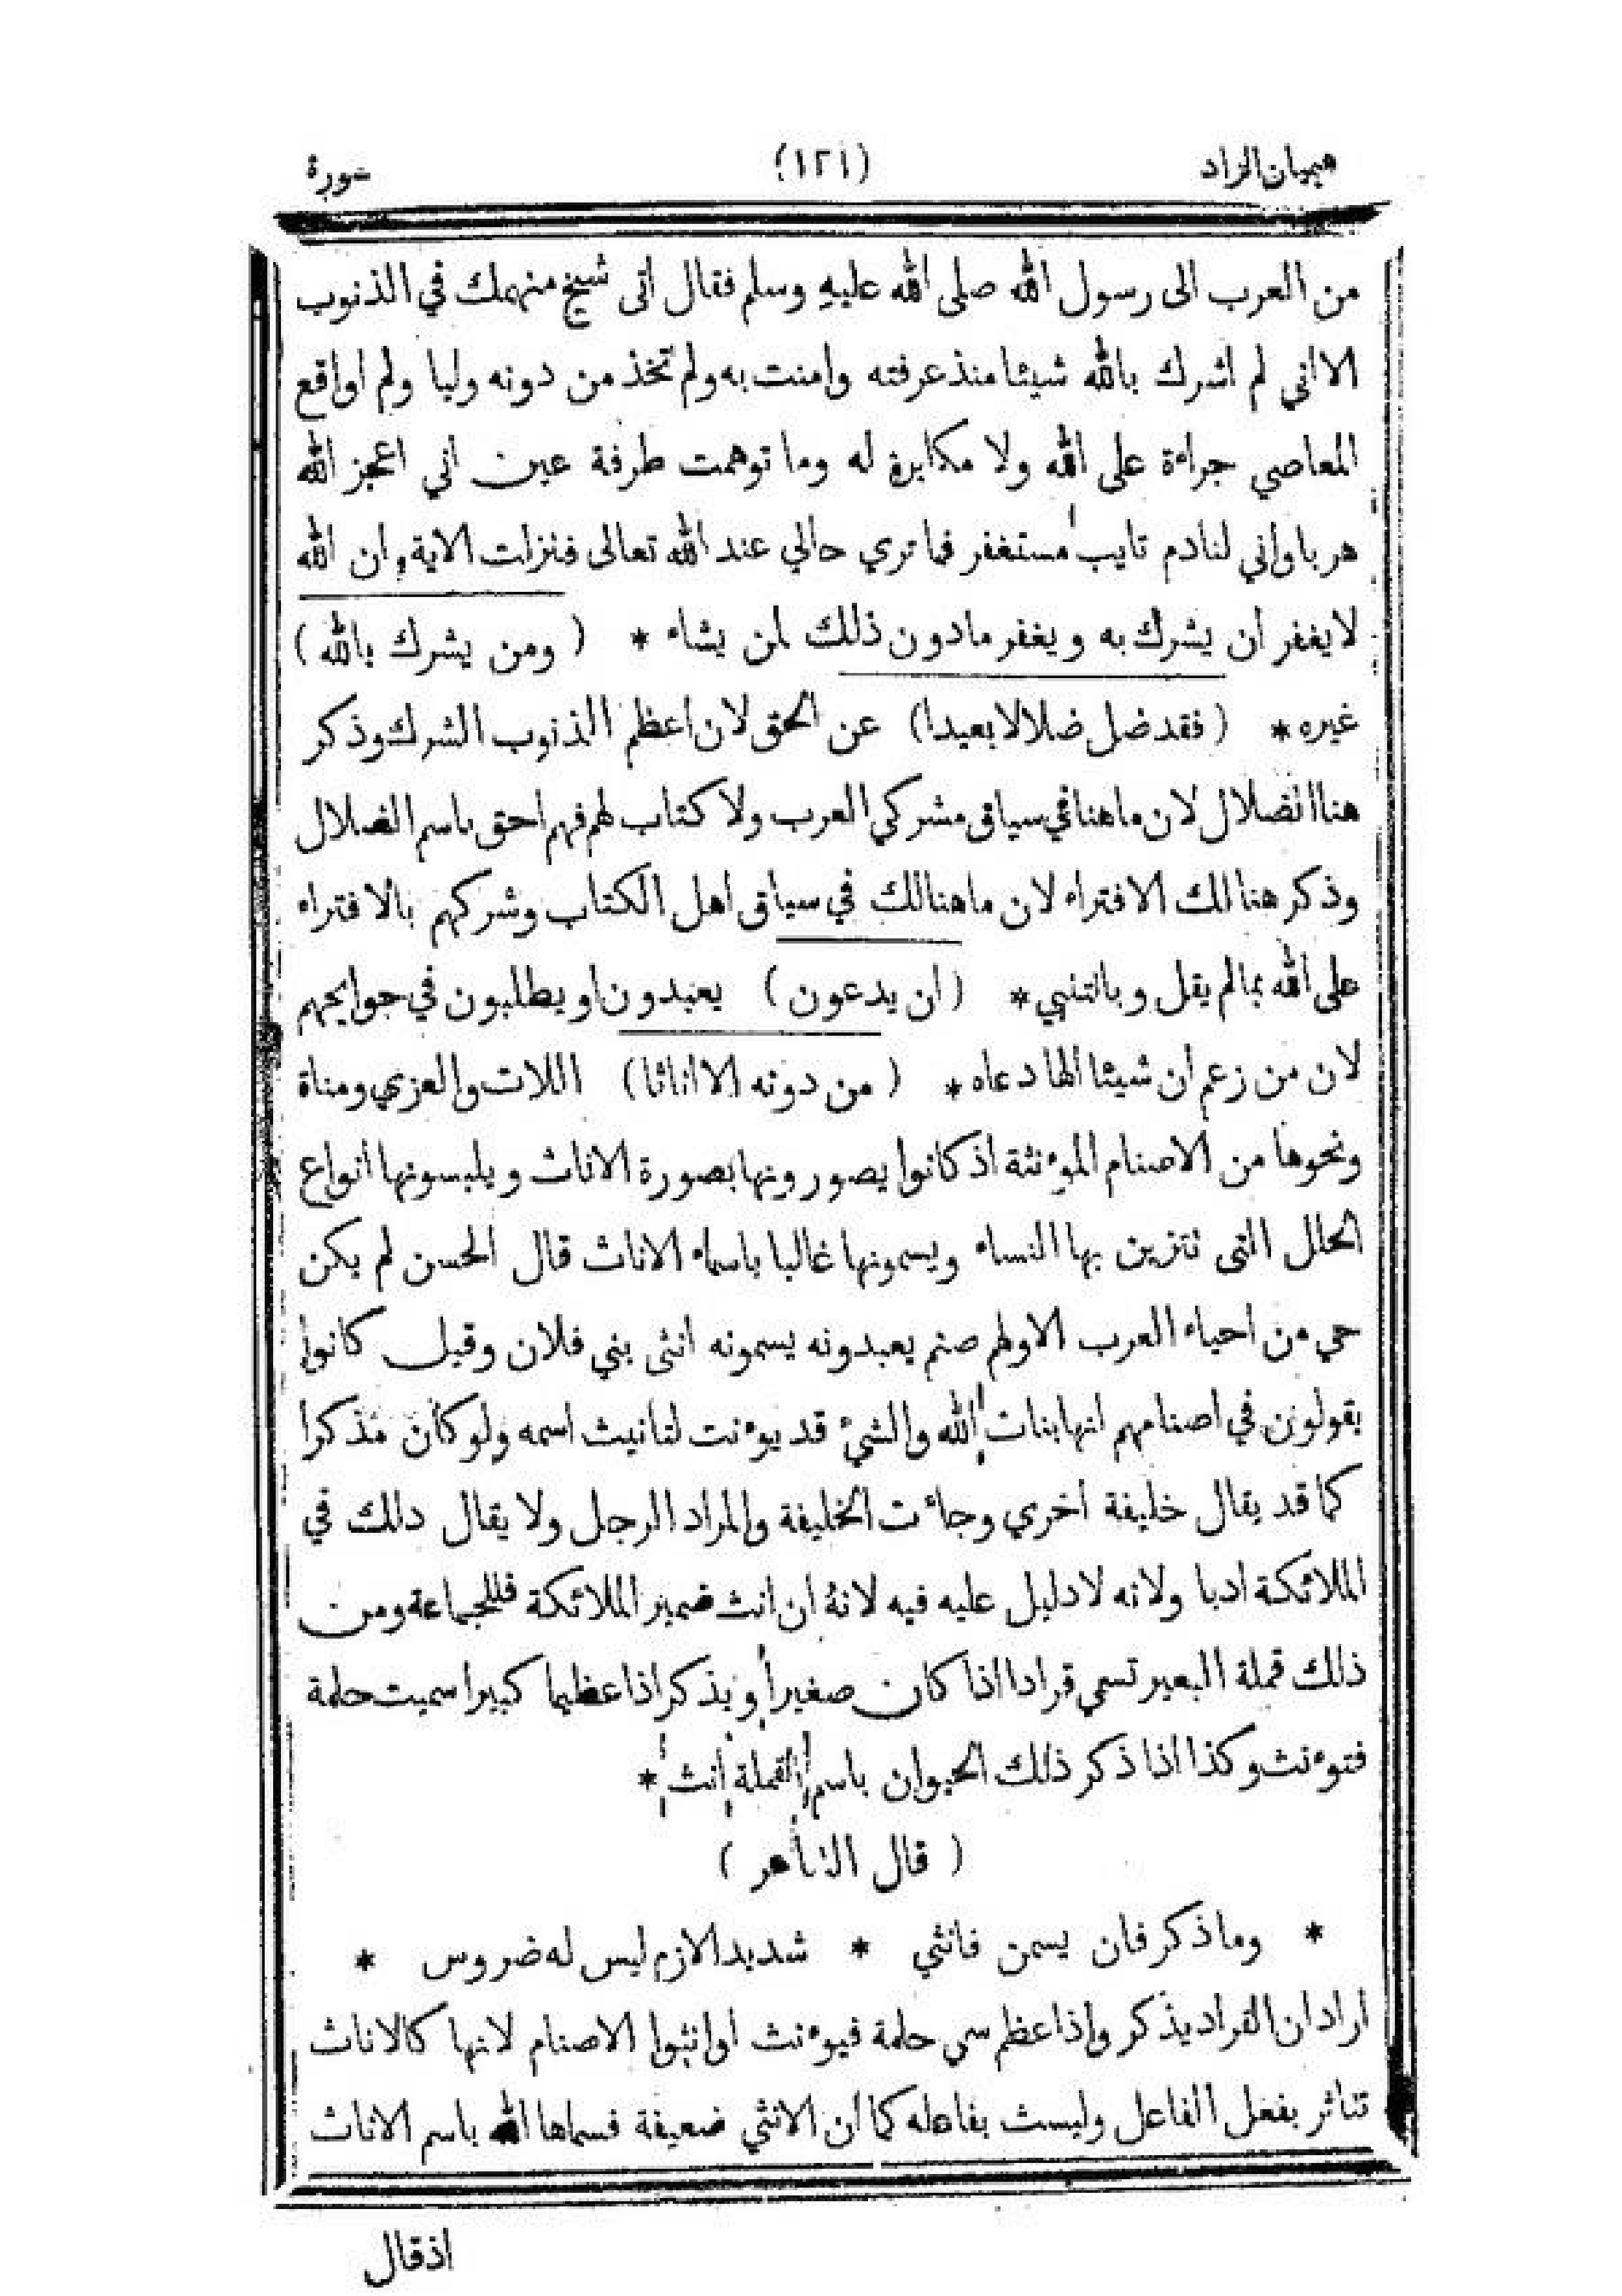 هيميان الزاد (١٢١) سورة
من العرب الى رسول الله صلى الله عليه وسلم فقال انى شيخ منهمك في الذنوب
الا اني لم اشرك بالله شيئا منذ عرفته وامنت به ولم تخذ من دونه وليا ولم اواقع
المعاصي جراءة على الله ولا مكابرة له وما توهمت طرفة عين اني اعجز الله
هربا واني لنادم تايب مستغفر فما تري حالي عند الله تعالى فنزلت الاية وان الله
لا يغفر ان يشرك به ويغفر مادون ذلك لمن يشاء * ( ومن يشرك بالله )
غيره * ( فقد ضل ضلالا بعيدا ) عن الحق لان اعظم الذنوب الشرك وذكر
هنا الضلال لان ما هنا في سياق مشركي العرب ولا كتاب لهم فهم احق باسم الضلال
وذكر هنا لك الافتراء لان ما هنالك في سياق اهل الكتاب وشركهم بالافتراء
على الله بمالم يقل وبالتنبي * ( ان يدعون ) يعبدون او يطلبون في حوايجهم
لان من زعم ان شيئا الها دعاه * ( من دونه الا اناثا ) اللات والعزي ومناة
ونحوها من الاصنام الموءنثة اذ كانوا يصورونها بصورة الاناث ويلبسونها انواع
الحلل التى تتزين بها النساء ويسمونها غالبا باسماء الاناث قال الحسن لم يكن
حي من احياء العرب الا ولهم صنم يعبدونه يسمونه انثى بني فلان وقيل كانوا
يقولون في اصنامهم انها بنات الله والشيء قد يوءنت لتانيث اسمه ولو كان مذكرا
كما قد يقال خليفة اخري وجاءت الخليفة والمراد الرجل ولا يقال دالك في
الملائكة ادبا ولانه لا دليل عليه فيه لانه ان انث ضمير الملائكة فللجماعة ومن
ذلك قملة البعير تسمي قرادا اذا كان صغيرا ويذكر اذا عظيما كبيرا سميت حلمة
فتوءنث وكذا اذا ذكر ذلك الحيوان باسم القملة انث *
( قال الشاعر )
* وما ذكر فان يسمن فانثي * شديد الازم ليس له ضروس *
اراد ان القراد يذكر واذا عظم سمي حلمة فيوءنث او انثوا الاصنام لانها كالاناث
تتاثر بفعل الفاعل وليست بفاعله كما ان الانثي ضعيفة فسماها الله باسم الاناث
اذ قال